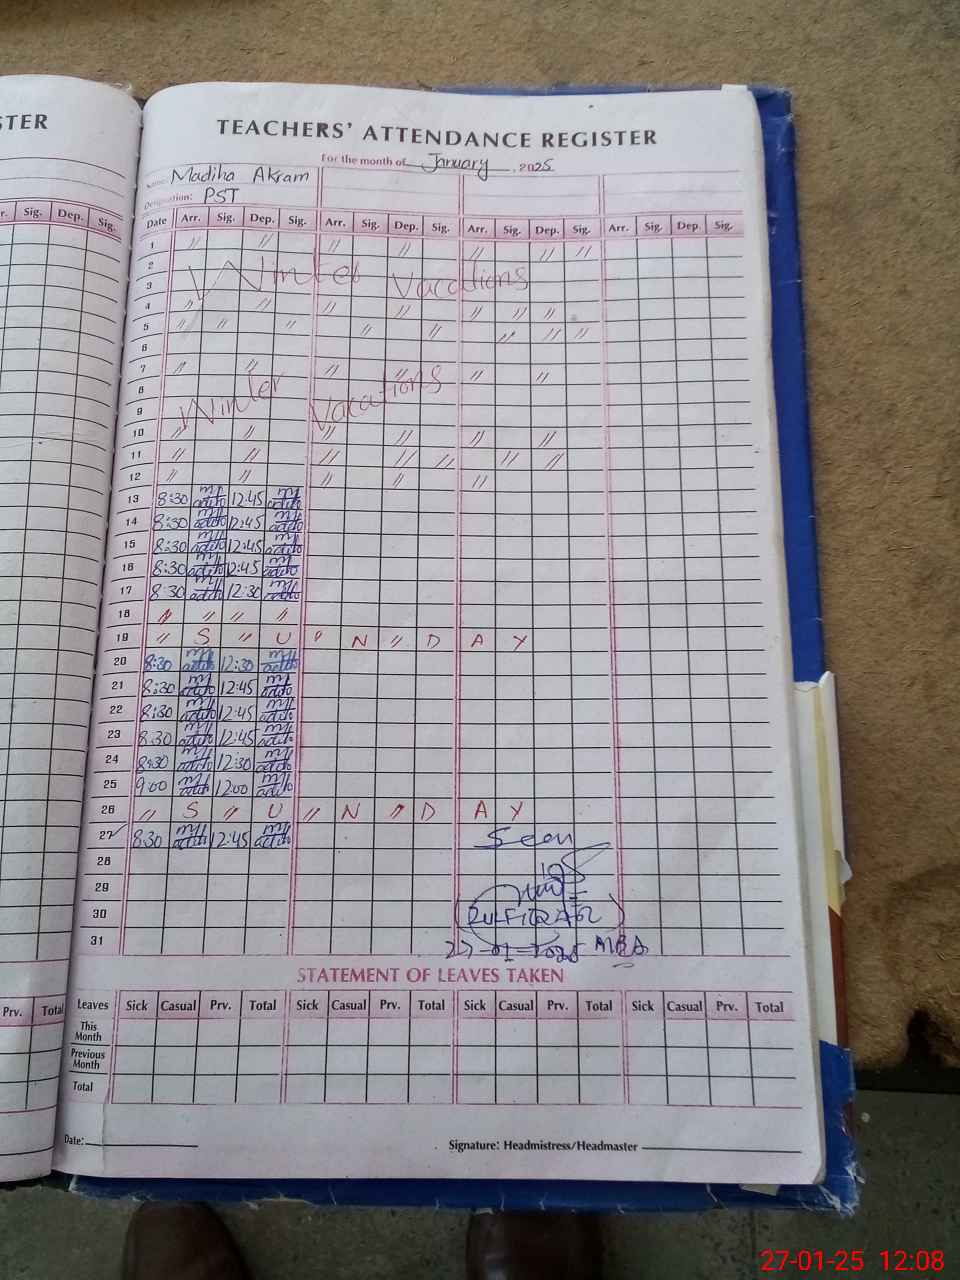 STER
TEACHERS' ATTENDANCE REGISTER
For the month of January, 2025
Name: Madiha Akram
Designation: PST
r. Sig. Dep. Sig.
Date Arr. Sig. Dep. Sig. Arr. Sig. Dep. Sig. Arr. Sig. Dep. Sig. Arr. Sig. Dep. Sig.
1 " " " " " " "
2
3 Winter Vacations
4 " " " " " " "
5 " " " " " " " "
6
7 " " " " " "
8
9 Winter Vacations
10 " " " " " "
11 " " " " " " "
12 " " " " "
13 8:30 12:45
14 8:30 12:45
15 8:30 12:45
16 8:30 12:45
17 8:30 12:30
18 " " " "
19 " S " U " N " D A Y
20 8:30 12:30
21 8:30 12:45
22 8:30 12:45
23 8:30 12:45
24 8:30 12:30
25 9:00 12:00
26 " S " U " N " D A Y
27 8:30 12:45 Seen
28
29
30 ZULFIQAR
31 27-01-2025
STATEMENT OF LEAVES TAKEN
Prv. Total
Leaves Sick Casual Prv. Total Sick Casual Prv. Total Sick Casual Prv. Total Sick Casual Prv. Total
This Month
Previous Month
Total
Date:
Signature: Headmistress/Headmaster
27-01-25 12:08